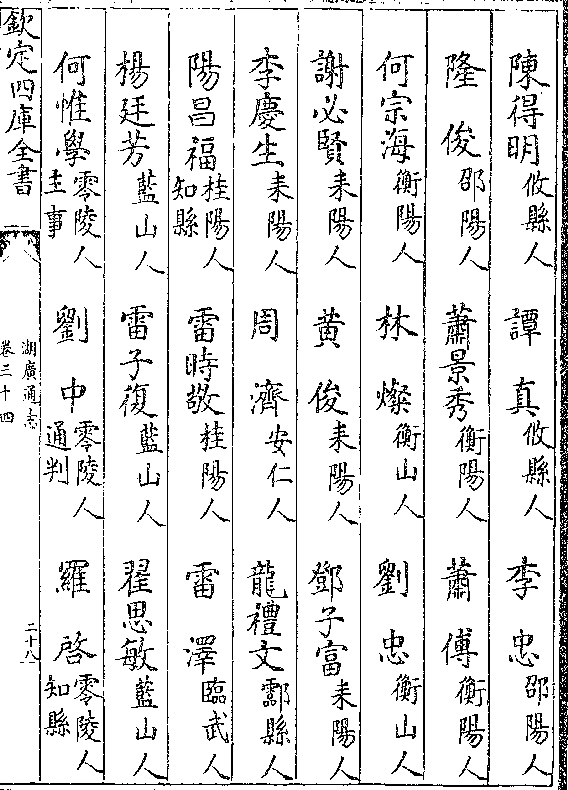 陳得明攸縣人 譚真攸縣人 李忠邵陽人
隆俊邵陽人 蕭景秀衡陽人 蕭傅衡陽人
何宗海衡陽人 林燦衡山人 劉忠衡山人
謝必賢耒陽人 黄俊耒陽人 鄧子富耒陽人
李慶生耒陽人 周濟安仁人 龍禮文酃縣人
陽昌福桂陽人知縣 雷時敬桂陽人 雷澤臨武人
楊廷芳藍山人 雷子復藍山人 翟思敏藍山人
何惟學零陵人主事 劉中零陵人通判 羅啓零陵人知縣
欽定四庫全書
湖廣通志
卷三十四
二十八